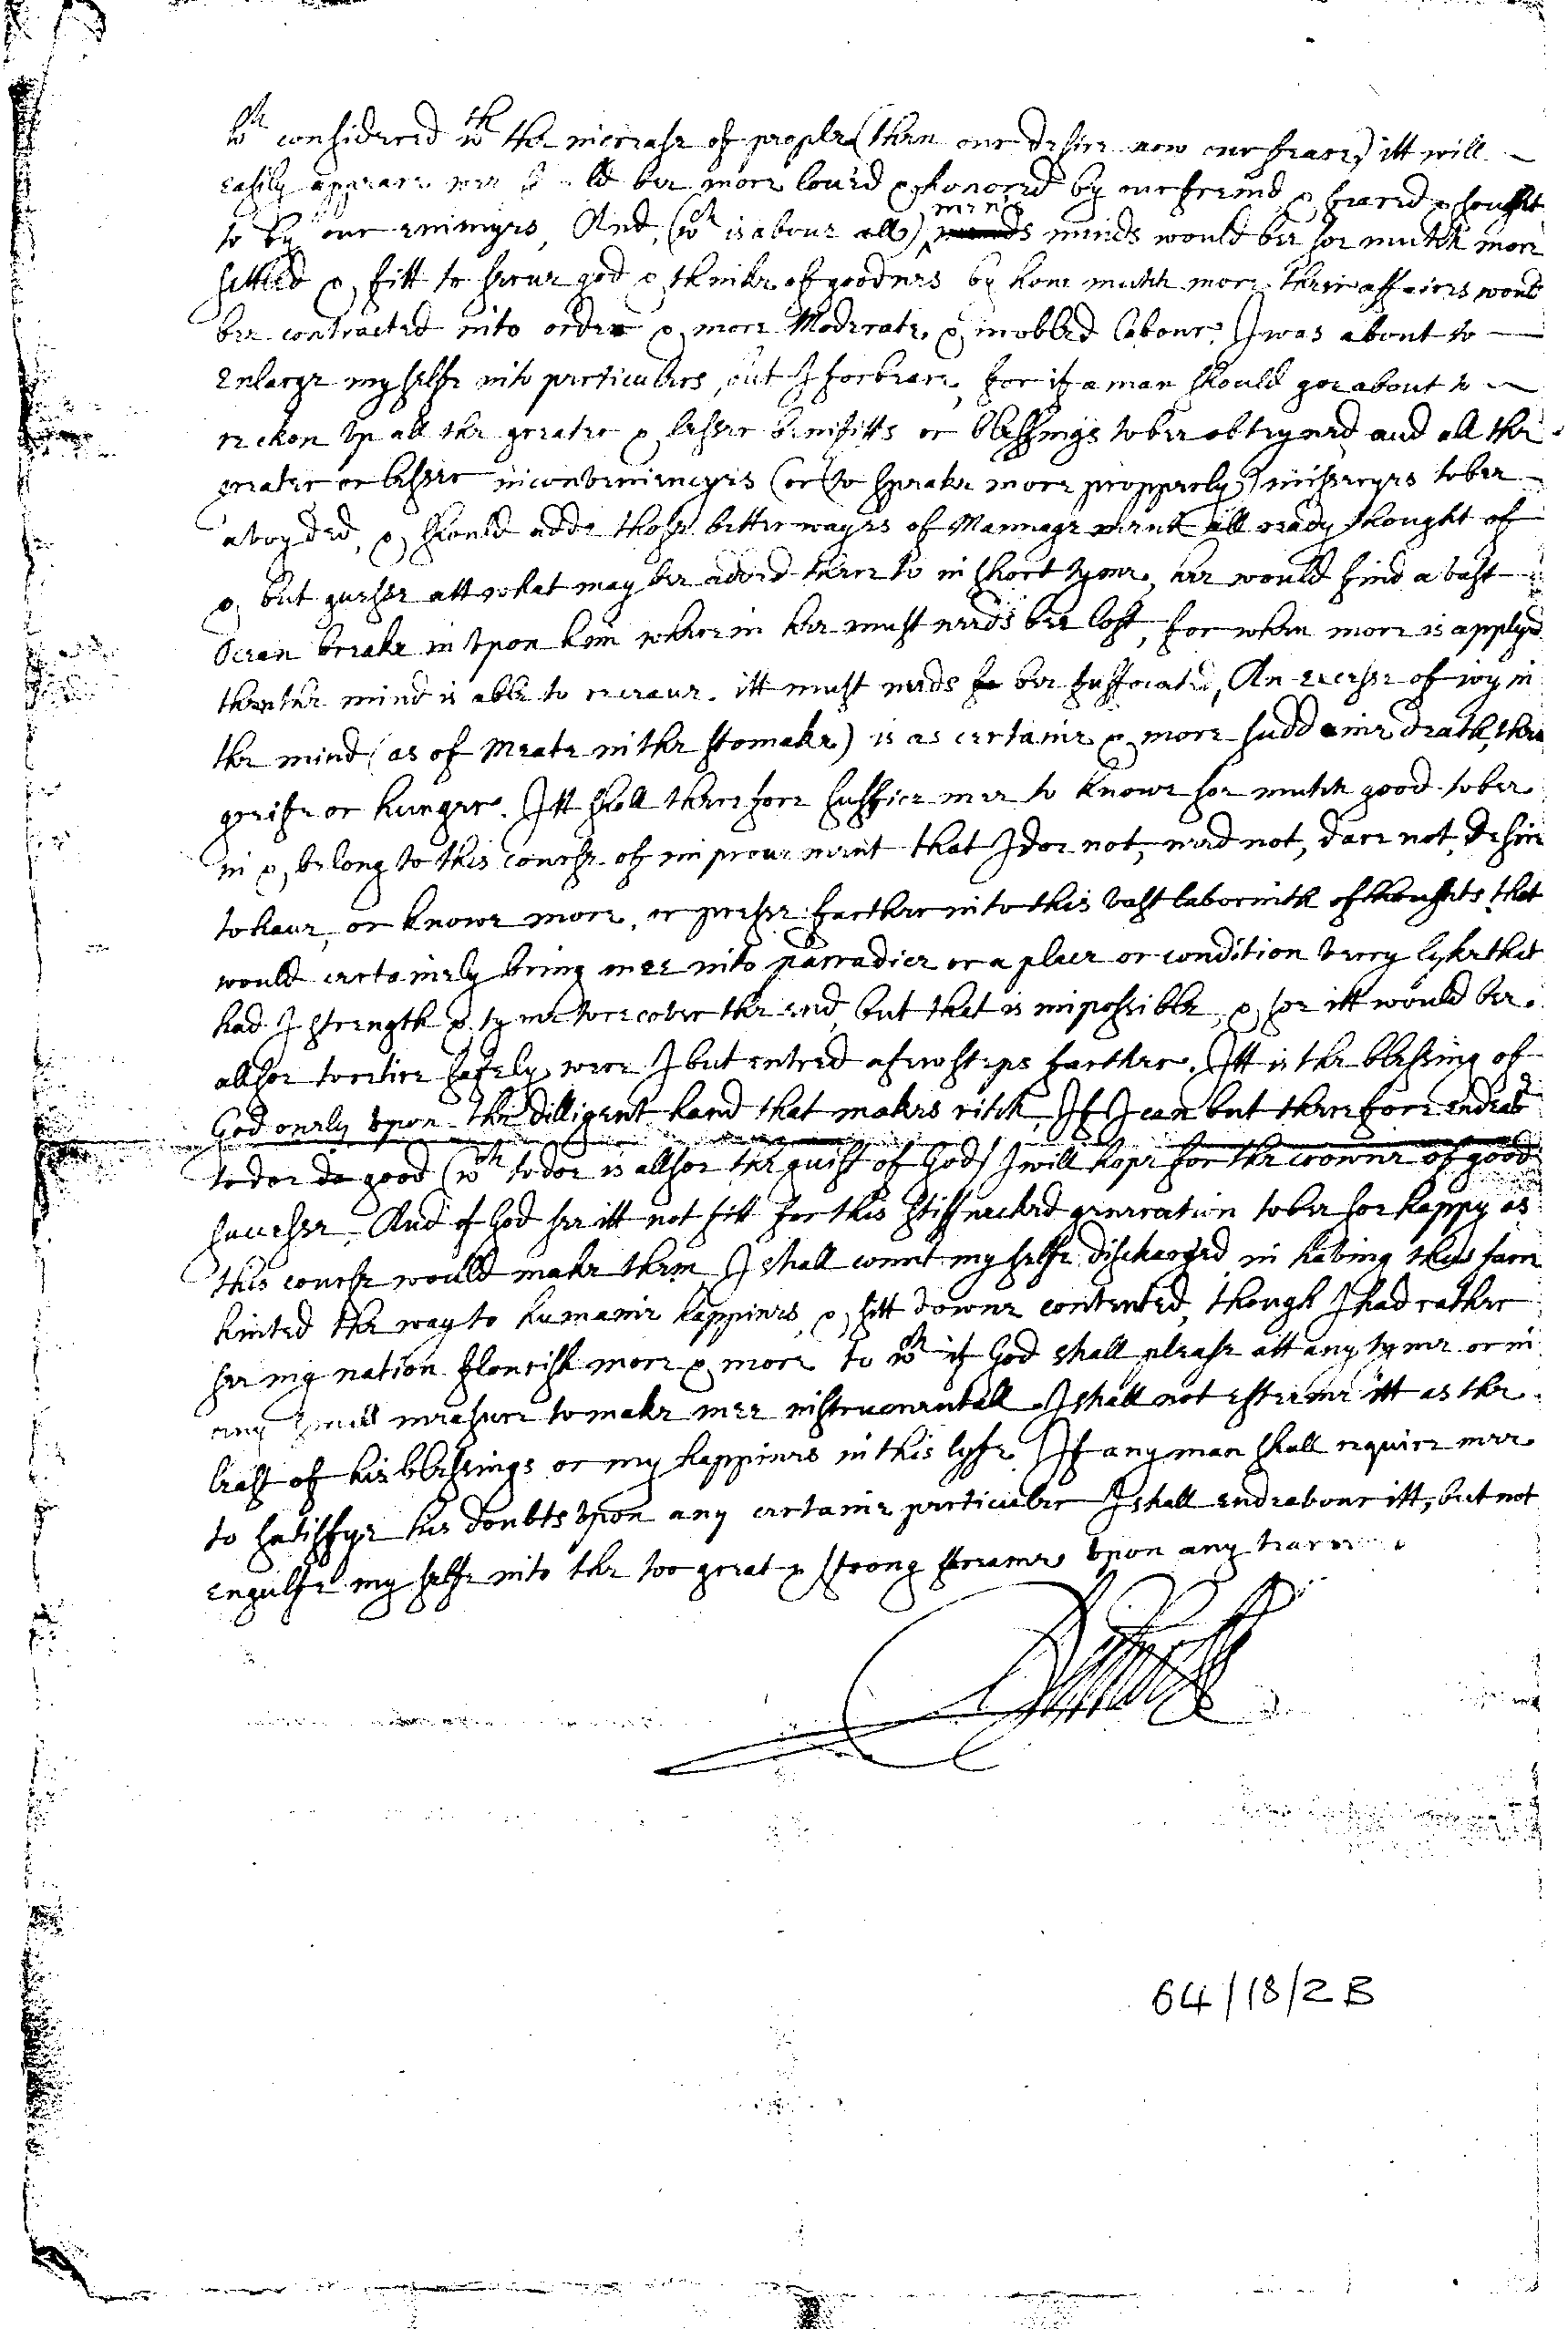 wch considered wth the increase of people (then our desire now our feare) itt will
easily appeare wee ld bee more loued & honored by our freind & feared & sought
to by our enimyes, And, (wch is aboue all) mens minds would bee soe mutch more
settled & fitt to serue god & thinke of goodnes by how mutch more their affaires would
bee contracted into order & more Moderate & inobled labour. I was about to
enlarge my selfe into perticulers, but I forbeare, for if a man should goe about to
reckon vp all the greater & lesser benifitts or blessings to bee obteyned, and all the
greater or lesser inconveniencyes (or (to speake more propperly) misseryes to bee
avoyded, & should adde those better wayes of Mannagement all ready thought of
& but guesse att what may bee added there to in short tyme, hee would find a vast
Ocean breake in vpon him wherein hee must needs bee lost, for when more is applyed
then the mind is able to receaue. itt must needs bee suffocated, An excesse of ioy in
the mind (as of meate in the stomake) is as certaine & more suddaine death, then
greife or hunger. Itt shall therefore suffice mee to knowe soe mutch good to bee
in & belong to this course of improuement that I doe not, need not, dare not, desire
to haue, or knowe more, or presse farther into this vast laborinth of thoughts that
would certainely bring mee into parradice or a place or condition very lyke that
had I strength & tyme to recover the end, but that is impossible, & soe itt would bee
allsoe to retire safely were I but entred a few steps farther. Itt is the blessing of
God onely vpon the dilligent hand that makes ritch, If I can but therefore endeavor
to doe do good (wch to doe is allsoe the guift of God) I will hope for the crowne of good
successe, And if God see itt not fitt for this stiffnecked generation to bee soe happy as
this course would make them, I shall count my selfe discharged in having thus farre
hinted the way to humaine happines, & sitt downe contented, though I had rather
see my nation flourish more & more to wch if God shall please att any tyme or in
any small measure to make mee instrumentall I shall not esteeme itt as the
least of his blessings or my happines in this lyfe. If any man shall require mee
to satisfye his doubts vpon any certaine perticuler I shall endeavour itt, but not
engulfe my selfe into the too great & strong streame vpon any
64/18/2B